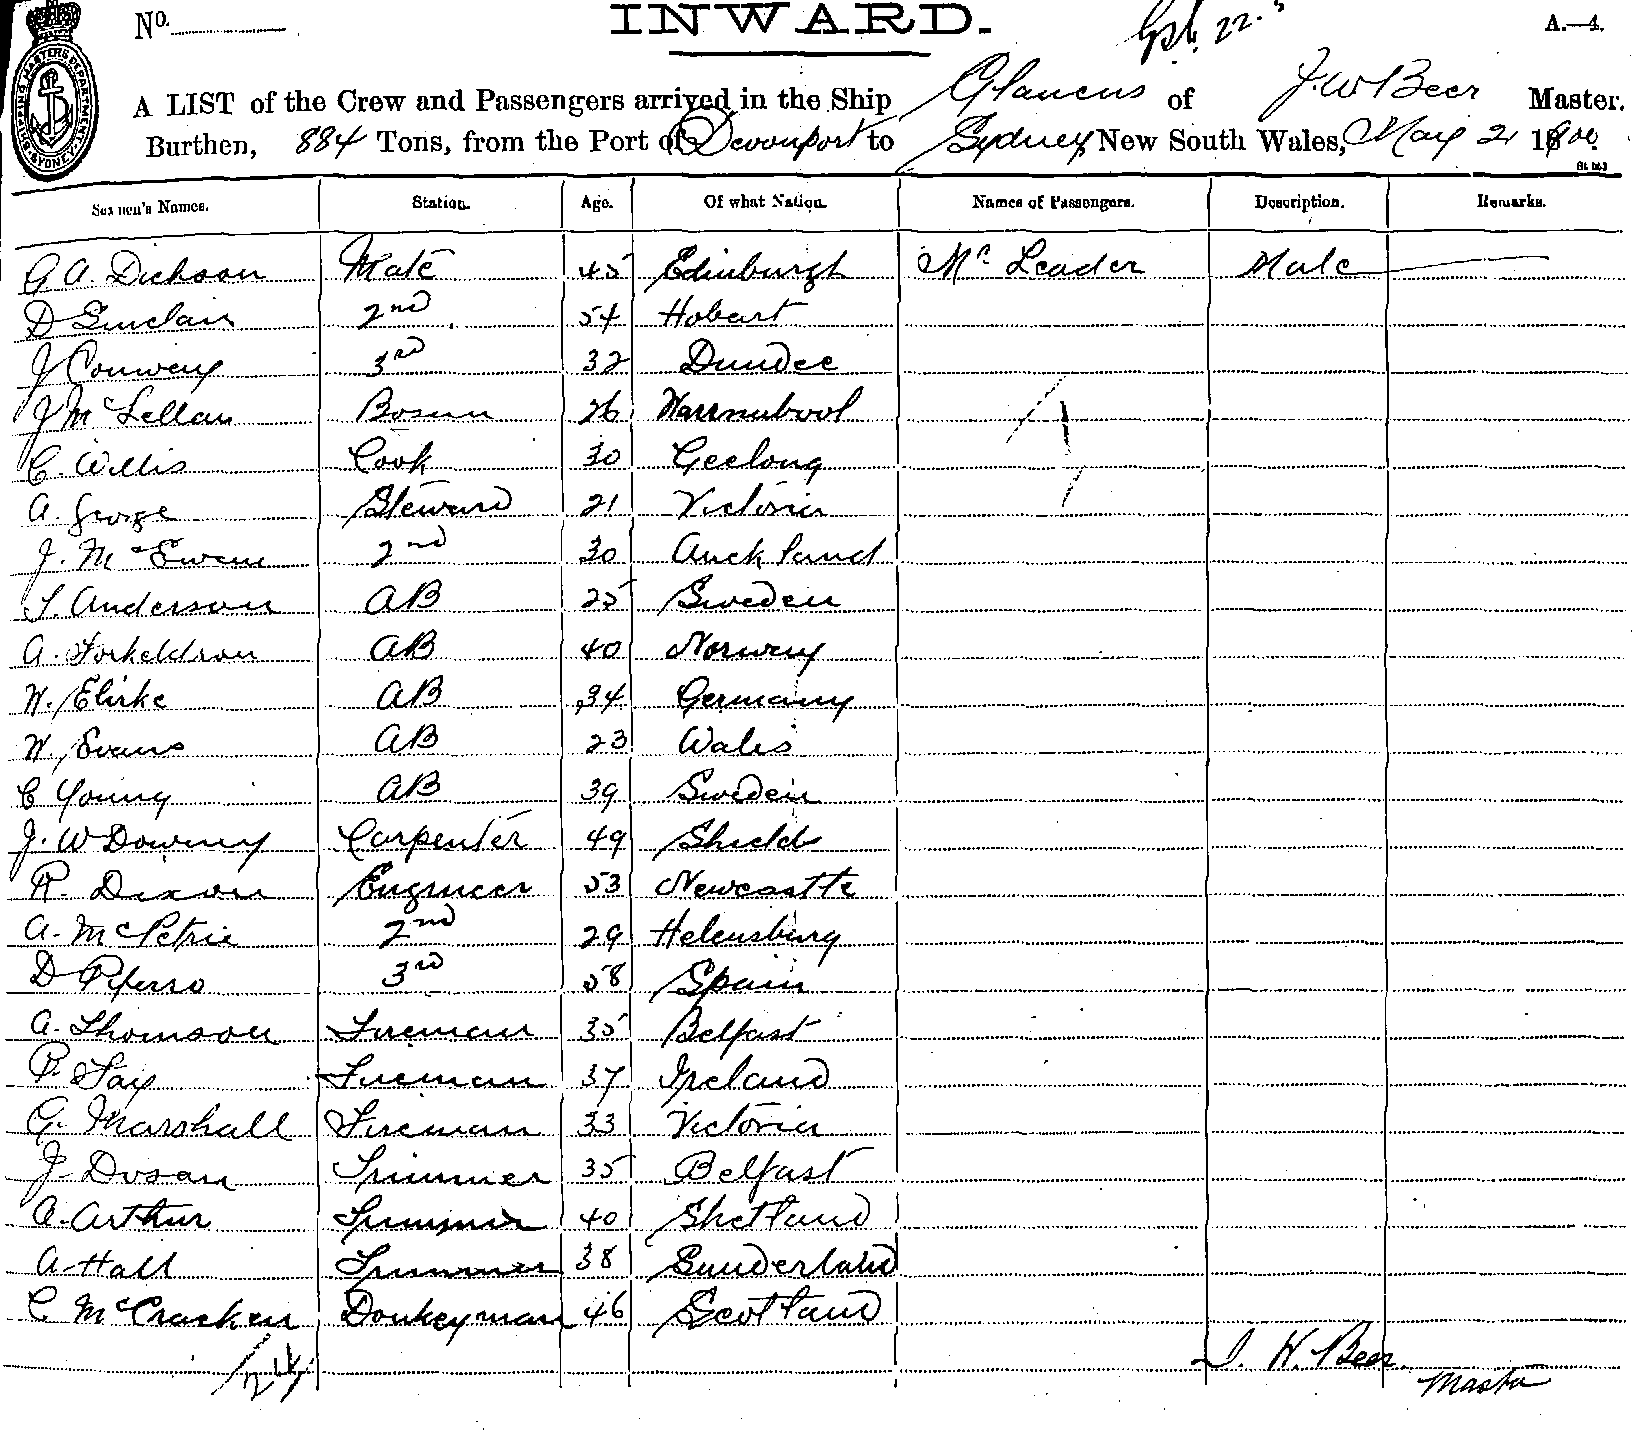 No. INWARD. A.—4.
A LIST of the Crew and Passengers arrived in the Ship Glaucus of J. W Beer Master.
Burthen, 884 Tons, from the Port of Devonport to Sydney New South Wales, May 21 1900.
Seamen's Names. Station. Age. Of what Nation. Names of Passengers. Description. Remarks.
G A. Dickson Mate 45 Edinburgh Mr Leader Male
D Sinclair 2nd 54 Hobart
J Conway 3rd 32 Dundee
J McLellan Bosun 26 Warrnubool
C. Willis Cook 30 Geelong
A. George Steward 21 Victoria
J. McEwen 2nd 30 Auckland
Anderson AB 25 Sweden
A. Torkeldson AB 40 Norway
W. Elirke AB 34 Germany
W. Evans AB 23 Wales
C Young AB 39 Sweden
J. W Downey Carpenter 49 Shields
R. Dixon Engineer 53 Newcastle
A. McPetrie 2nd 29 Helensburg
D 3rd 58 Spain
A. Thomson Fireman 35 Belfast
P. Fireman 37 Ireland
G. Marshall Fireman 33 Victoria
J. Dosan Trimmer 35 Belfast
A. Arthur Trimmer 40 Shetland
A Hall Trimmer 38 Sunderland
C McCracken Donkeyman 46 Scotland
J. W. Beer
24 Master